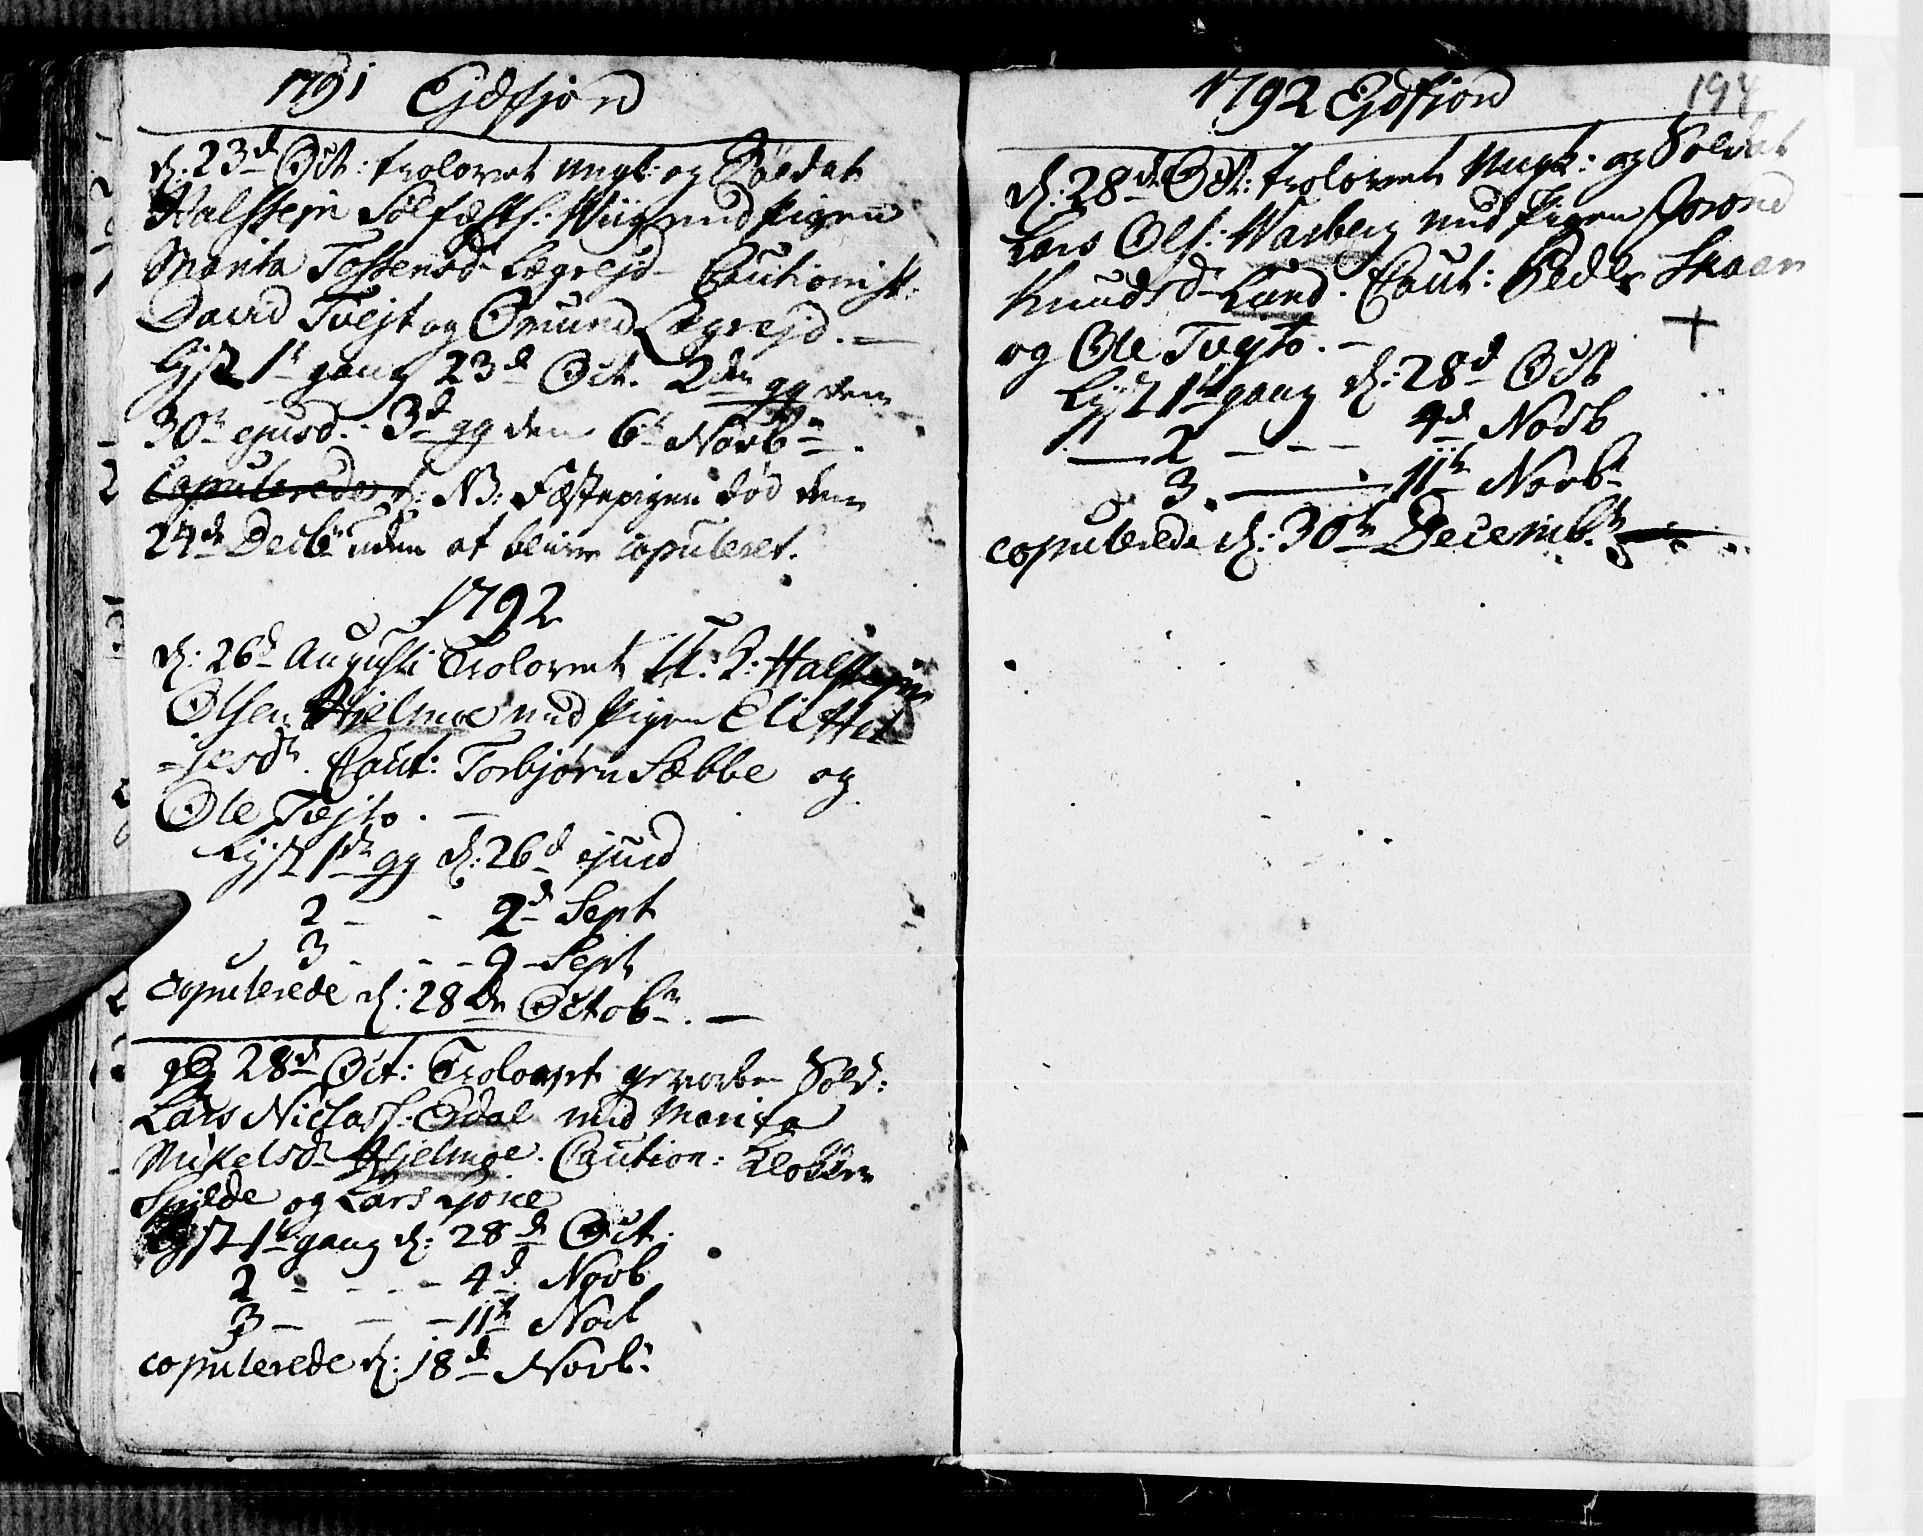 1791 Ejdfjord
d: 23d Oct: trolovet ungk: og Soldat
Halstejn Sølfæsts: Wiig med Pigen
Marita Tostensd Lægrejd - Cautionist:
David Tvejt og Omund Lægrejd. —
Lyst 1t gang 23d Oct. 2den gg den
30te ejusd. 3d gg den 6te Novbr.
Copulerede d: NB: Fæstepigen død den
24de Decbr uden at blive copuleret.
1792
d: 26d Augusti Trolovet Halstejn
Olsen Hjelmoe med Pigen Eli Hel-
-jesdr. Caut: Torbjørn Sæbbe og
Ole Tvejto. —
Lyst 1te gg d: 26d ejusd
2 - - 2d Sept
3 - - - 9 - Sept
copulerede d: 28de Octobr. —
28d Oct: Trolovet gevorben Sold:
Lars Niclass: Erdal med Marita
Mikelsdr Hjelmoe. Caution: Klokker
Spilde og Lars
Lyst 1t gang d: 28d Oct:
2 - - - - 4d Novb
3 - - - 11te Novb
copulerede d: 18d Novb:
1792 Ejdfjord
194
d: 28de Oct: trolovet Ungk: og Soldat
Lars Ols: Warberg med Pigen Jorond
Knudsd Lund. Caut: Peder Skaar
og Ole Tvejto. —
+
Lyst 1te gang d: 28d Oct
— 2 - - - 4d Novb
3. — 11te Novbr
copulerede d: 30te Decembr.